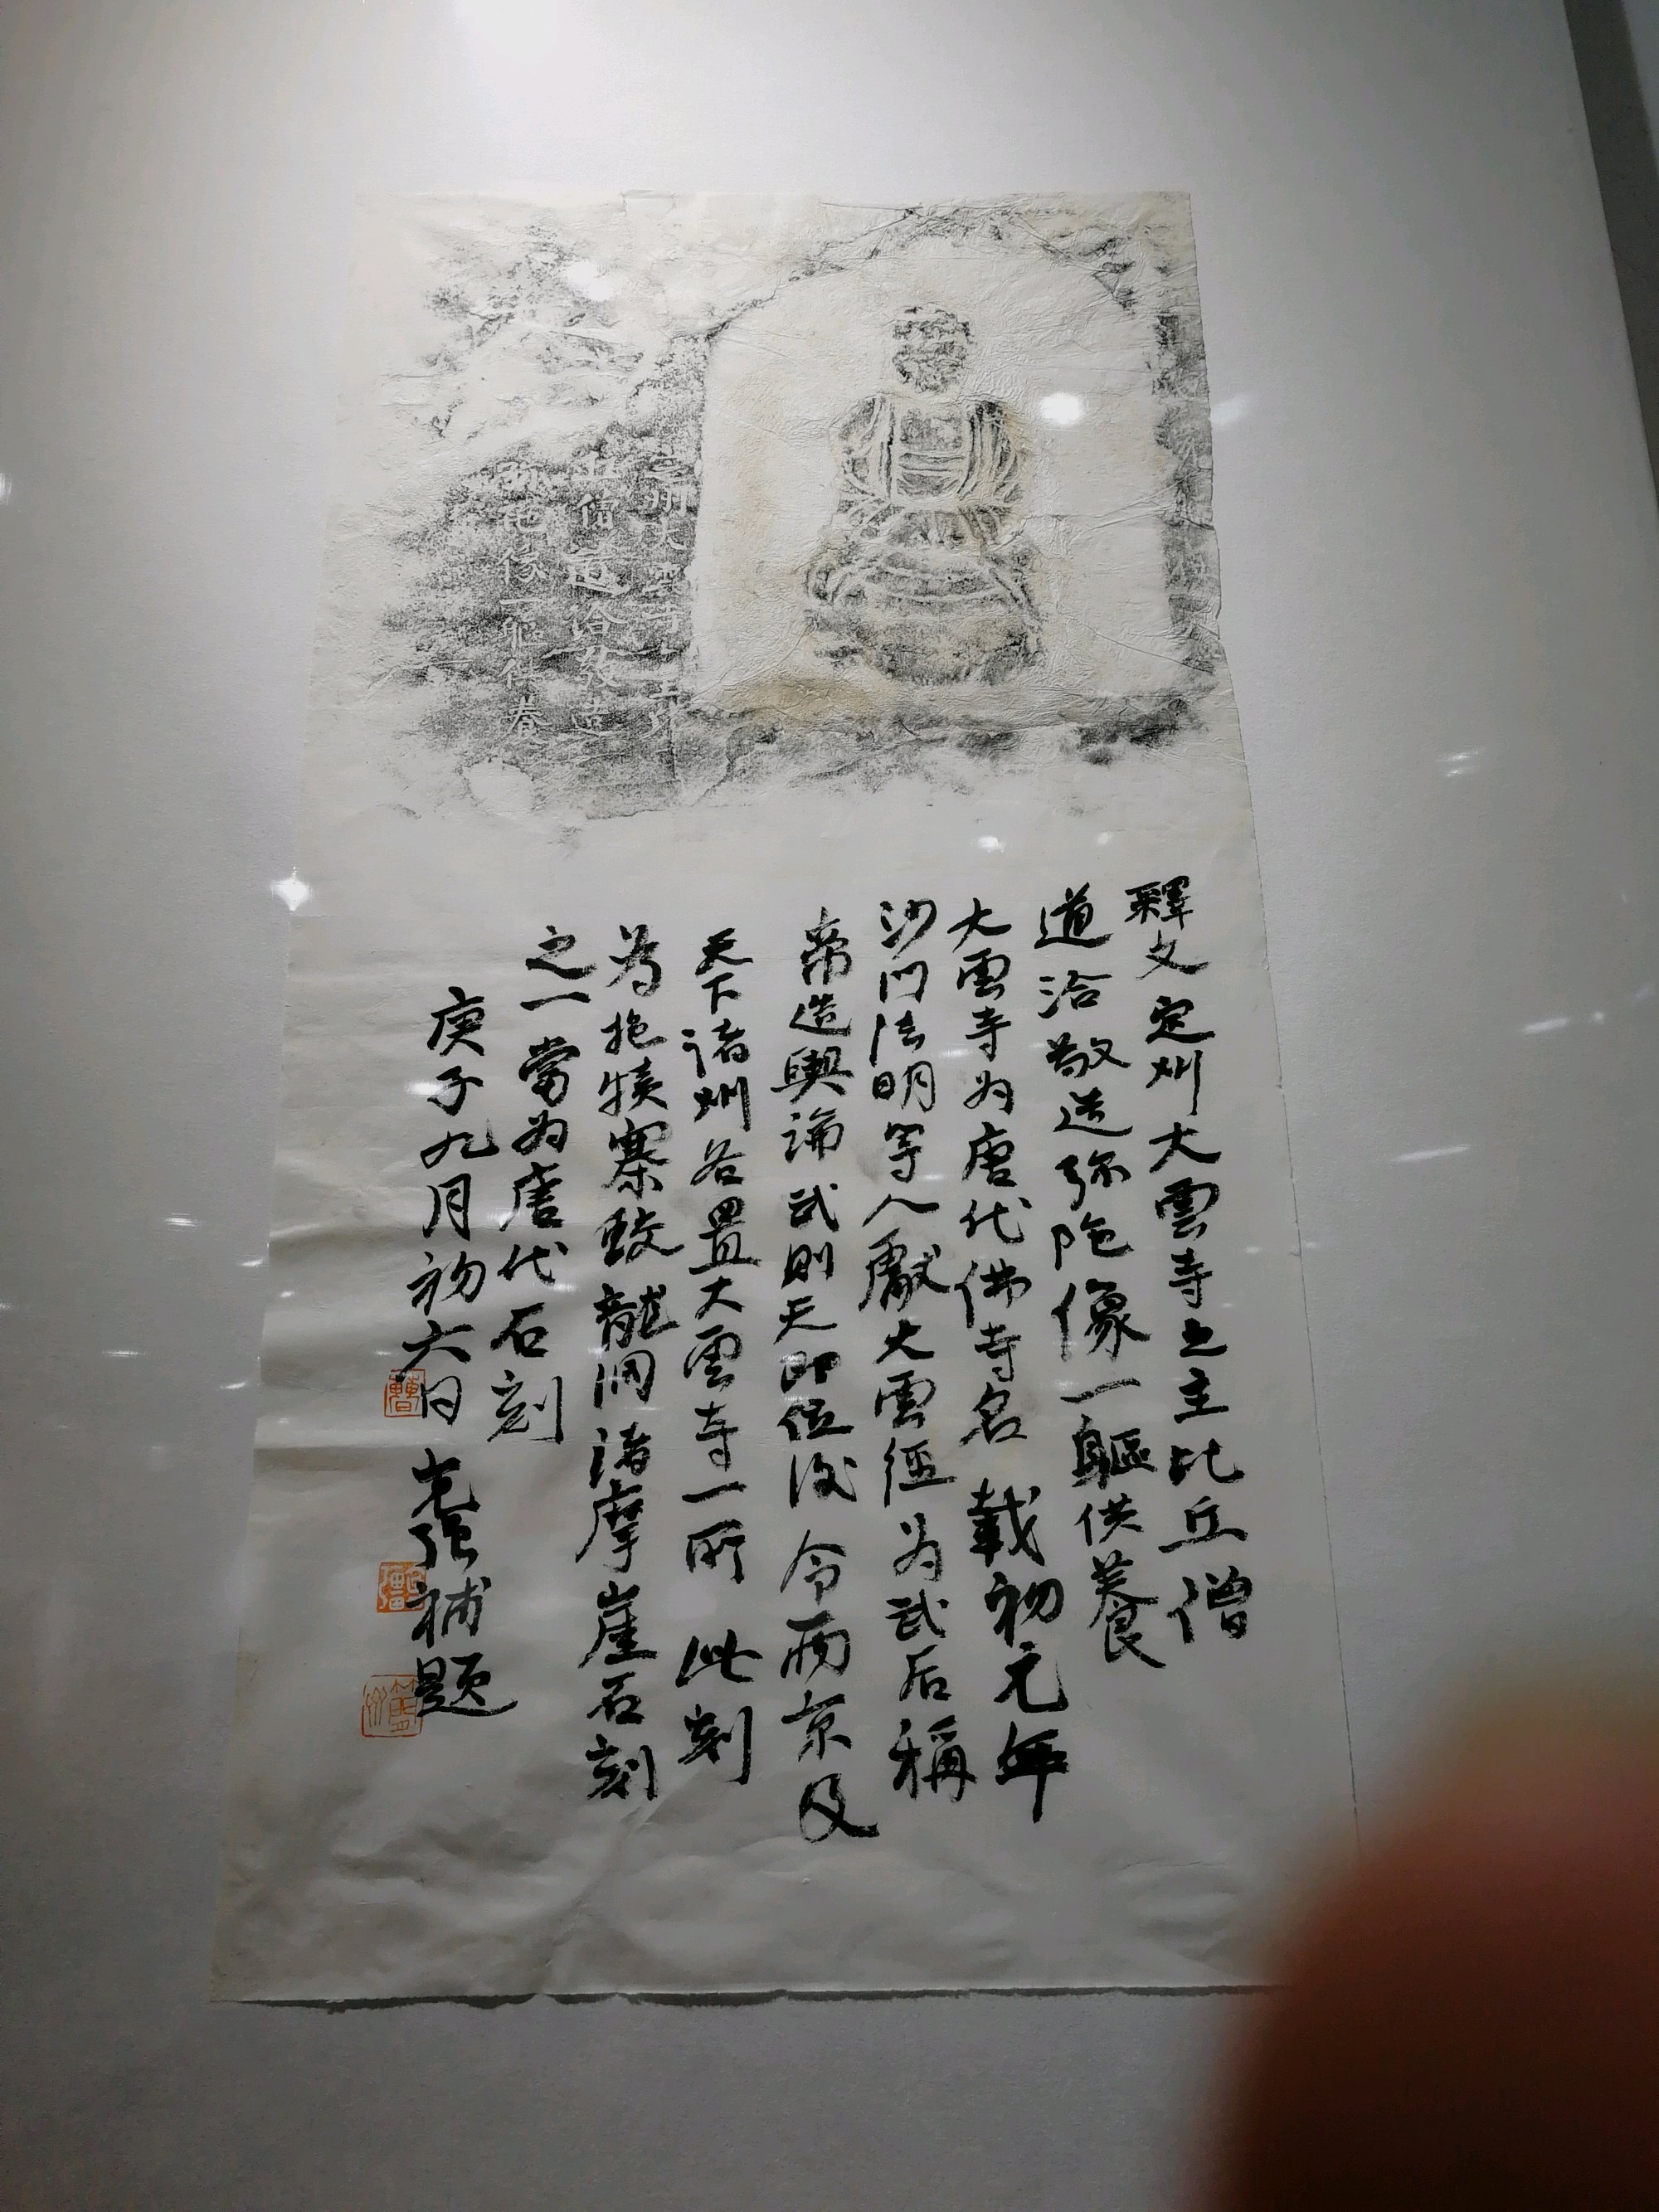 州大雲寺
僧道洽敬造
像一軀供養
釋文定州大雲寺之主比丘僧
道洽敬造弥陀像一軀供養
大雲寺为唐代佛寺名載初元年
沙门法明等人獻大雲經为武后稱
帝造輿論武則天即位後令兩京及
天下諸州各置大雲寺一所此刻
为抱犢寨蛟龍洞諸摩崖石刻
之一當为唐代石刻
庚子九月初六日
補題